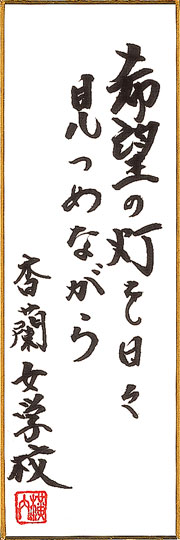 希望の灯を日々
見つめながら
香蘭女学校